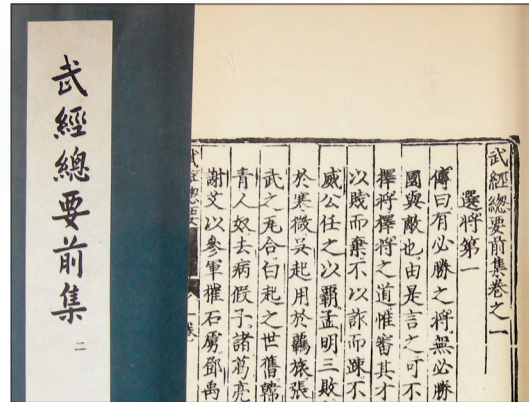 武經總要前集
二
武經總要前集卷之一
選將第一
傳曰有必勝之將無必勝
國與敵也由是言之可不
擇將擇將之道惟審其才
以賤而棄不以詐而踈不
威公任之以霸孟明三敗
於寒微吳起用於羈旅張
武之无合白起之世舊韓
青人奴去病假子諸葛亮
謝艾以參軍摧石虜鄧禹
武經總要